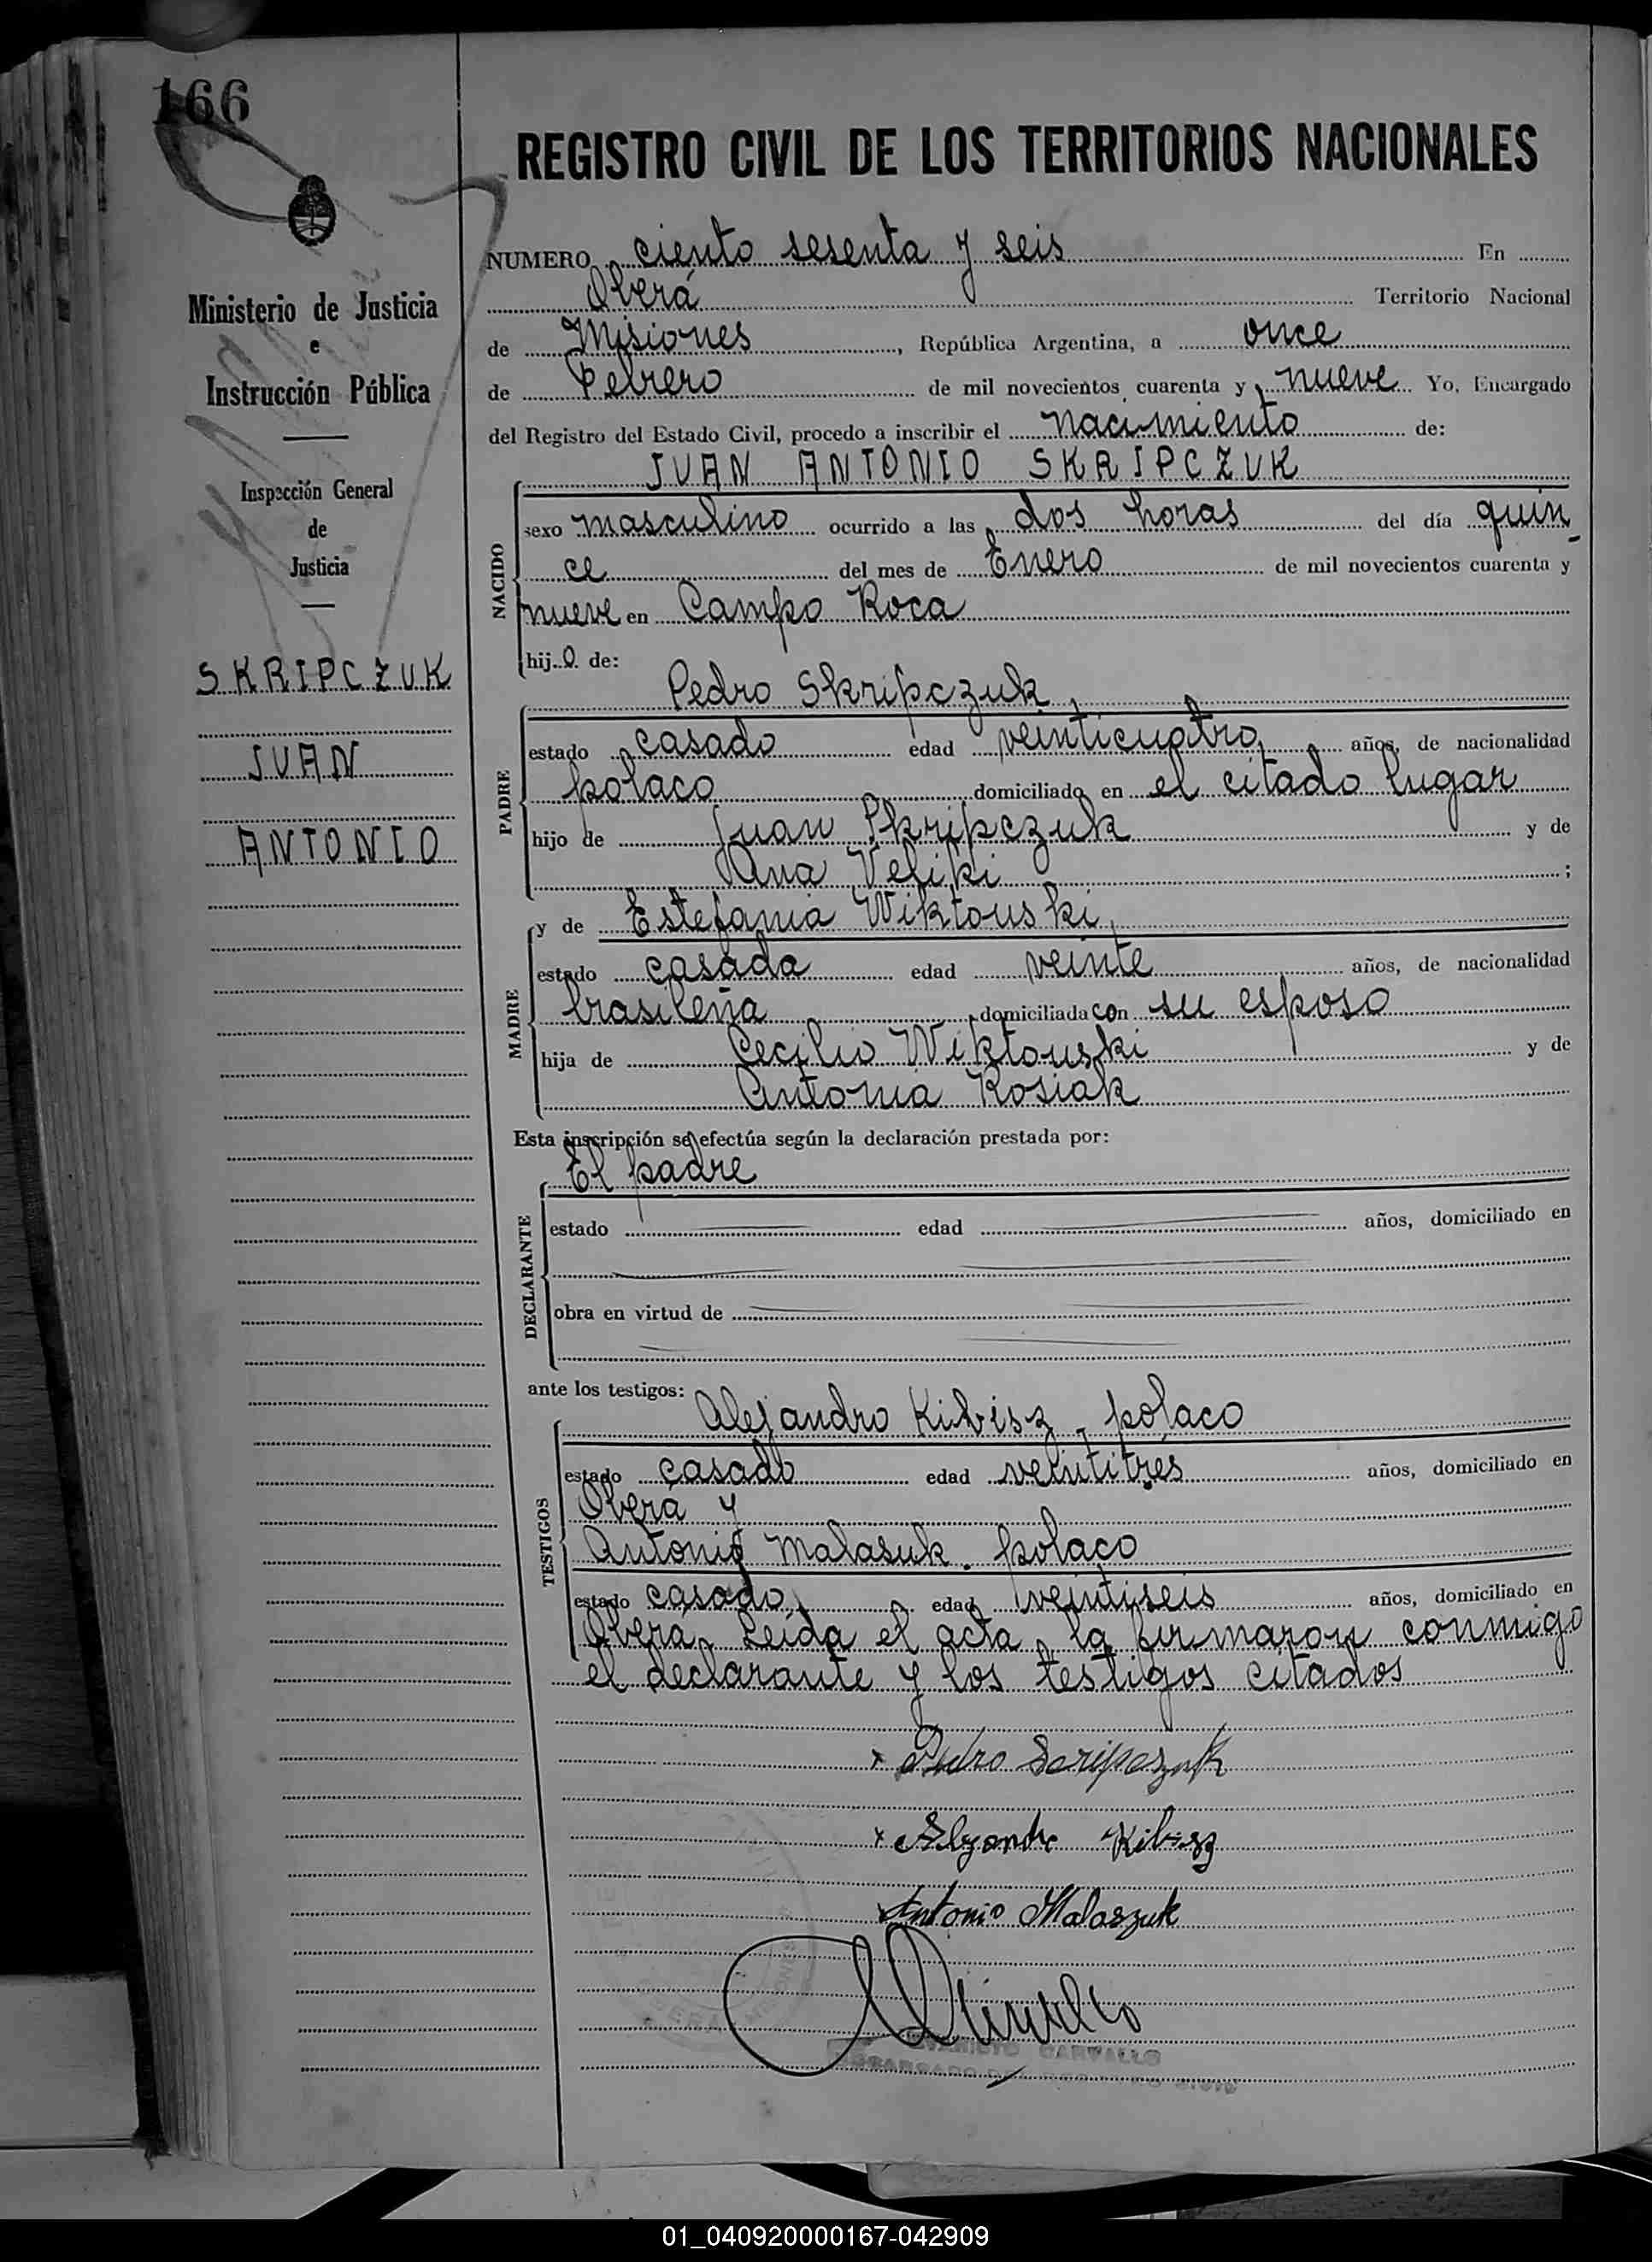 166
REGISTRO CIVIL DE LOS TERRITORIOS NACIONALES
Ministerio de Justicia
e
Instrucción Pública
Inspección General
de
Justicia
SKRIPCZUK
JUAN
ANTONIO
NUMERO ciento sesenta y seis En
Oberá Territorio Nacional
de Misiones, República Argentina, a once
de Febrero de mil novecientos cuarenta y nueve Yo, Encargado
del Registro del Estado Civil, procedo a inscribir el nacimiento de:
JUAN ANTONIO SKRIPCZUK
NACIDO
sexo masculino ocurrido a las dos horas del día quin-
ce del mes de Enero de mil novecientos cuarenta y
nueve en Campo Roca
hijo de:
Pedro Skripczuk
PADRE
estado casado edad veinticuatro años, de nacionalidad
polaco domiciliado en el citado lugar
hijo de Juan Skripczuk y de
Ana Veliki ;
y de Estefania Wiktouski
MADRE
estado casada edad veinte años, de nacionalidad
brasileña domiciliada con su esposo
hija de Cecilio Wiktouski y de
Antonia Rosiak
Esta inscripción se efectúa según la declaración prestada por:
El padre
DECLARANTE
estado edad años, domiciliado en
obra en virtud de
ante los testigos:
Alejandro Kibisz, polaco
TESTIGOS
estado casado edad veintitrés años, domiciliado en
Oberá y
Antonio Malasuk. polaco
estado casado, edad veintiseis años, domiciliado en
Oberá. Leida el acta, la firmaron conmigo
el declarante y los testigos citados
x Pedro Scripczuk
x Kibisz
x Antonio Malaszuk
CARVALLO
01_040920000167-042909